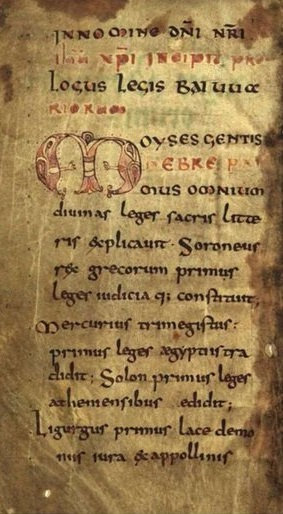 INNOMINE DNI NRI
IHU XPI INCIPIT PRO
LOGUS LEGIS BAIUUA
RIORUM
MOYSES GENTIS
EBRE
MUS OMNIUM
diuinas leges sacris litte
ris explicauit. Foroneus
rex grecorum primus
leges iudicia q; constituit;
Mercurius trimegistus:
primus leges aegyptiis tra
didit; Solon primus leges
athemensibus edidit;
Ligurgus primus lacedemo
niis iura ex appollinis